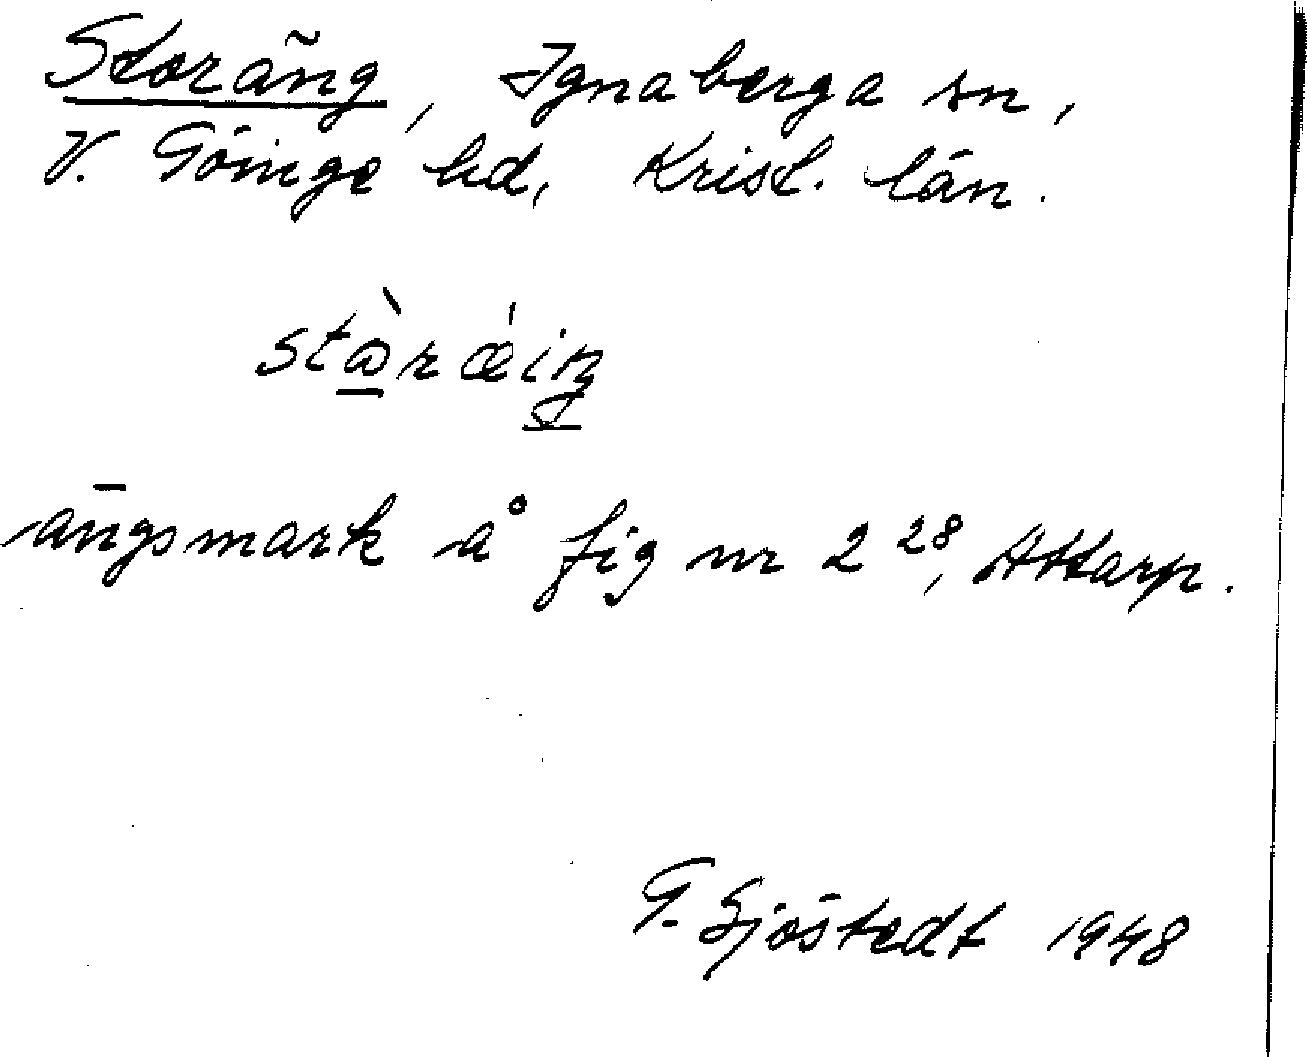 Storäng, Ignaberga sn,
V. Göinge hd, Krist. län.
ängsmark å fig nr 2²⁸, Attarp.
G. Sjöstedt 1948